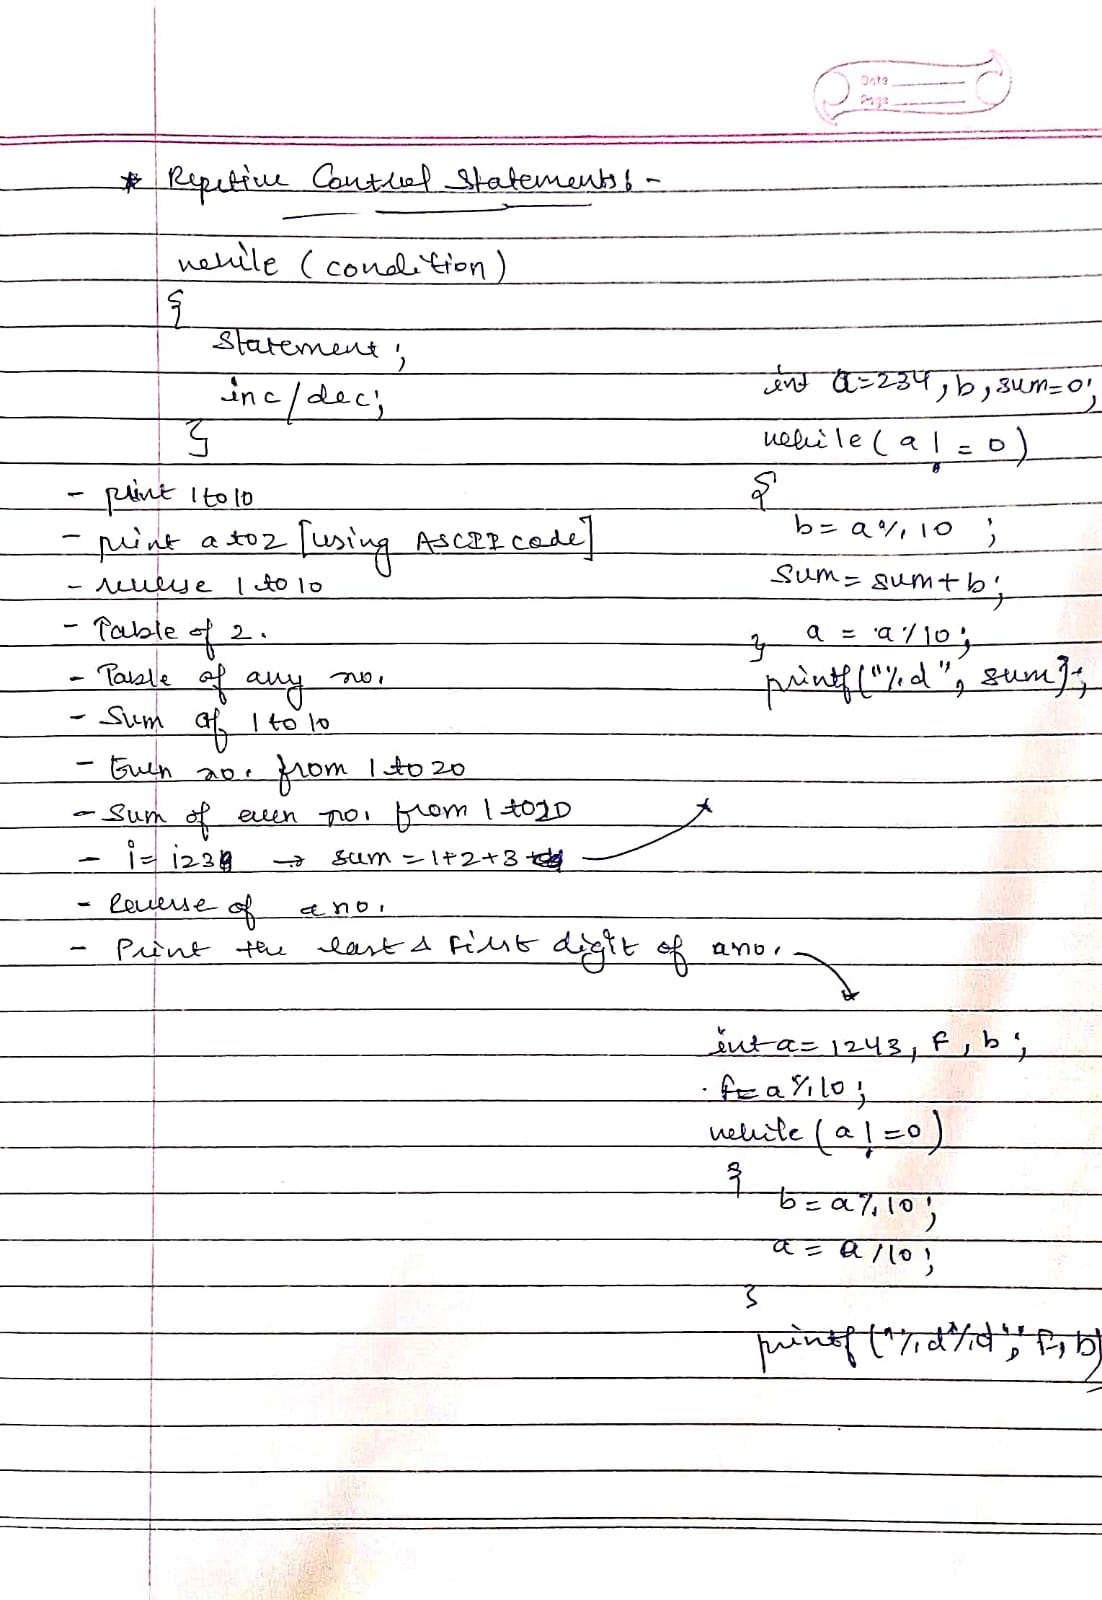 Date
Page
* Repetive Control Statements :-
while (condition)
{
statement ;
inc/dec;
}
- print 1 to 10
- print a to z [using ASCII code]
- reverse 1 to 10
- Table of 2.
- Table of any no.
- Sum of 1 to 10
- Even no. from 1 to 20
- Sum of even no. from 1 to 20
- i = 123 → sum = 1+2+3
- Reverse of a no.
- Print the last & first digit of a no.
int a=234, b, sum=0;
while ( a != 0 )
{
b = a % 10 ;
sum = sum + b ;
a = a / 10 ;
}
printf ("%d", sum);
int a = 1243, f, b ;
f = a % 10 ;
while ( a != 0 )
{
b = a % 10 ;
a = a / 10 ;
}
printf ("%d %d", f, b)